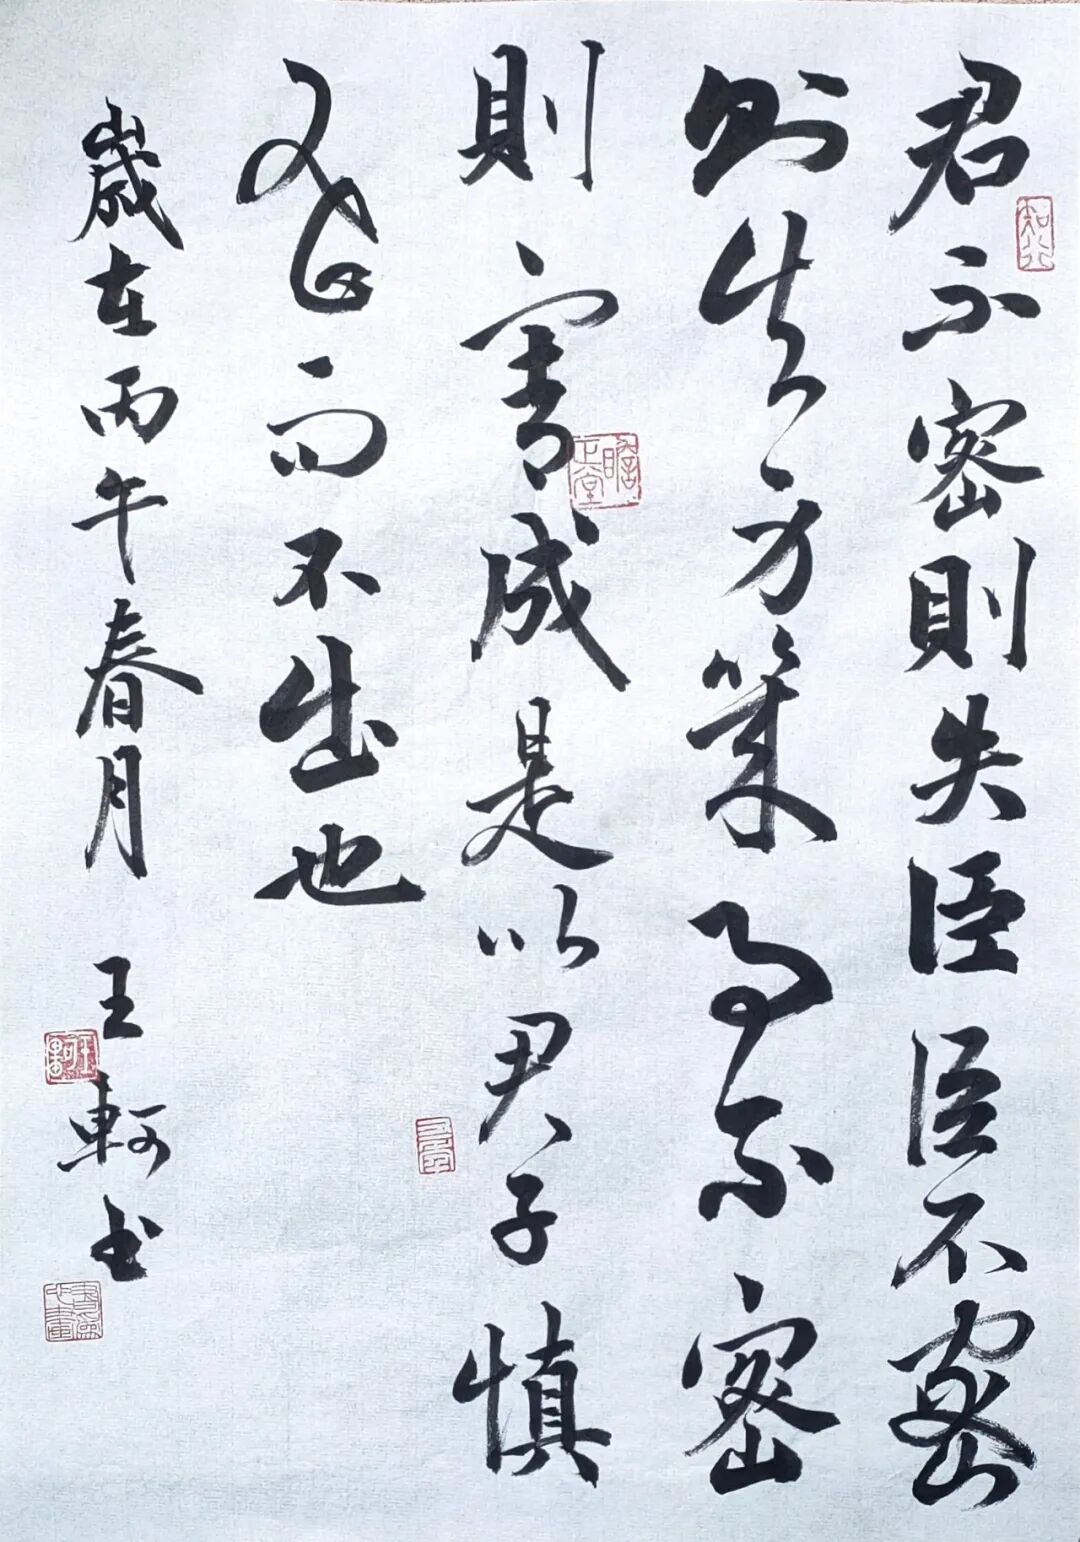 君不密則失臣臣不密
则失身幾事不密
則害成是以君子慎
密而不出也
歲在丙午春月 王軻书
王軻